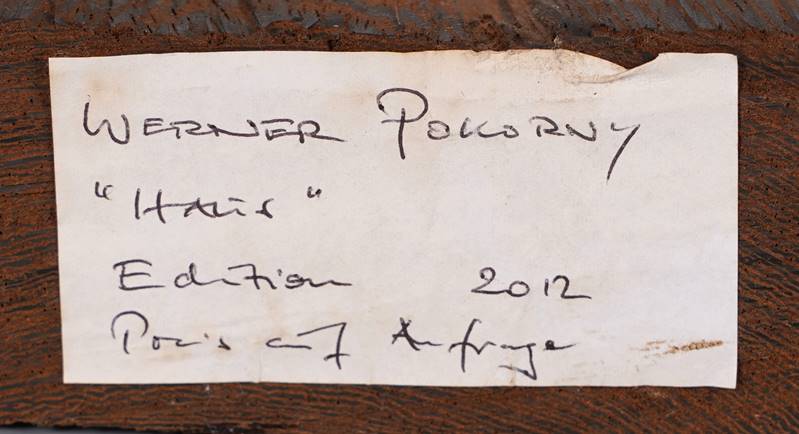 WERNER POKORNY
"Haus"
Edition 2012
Preis auf Anfrage